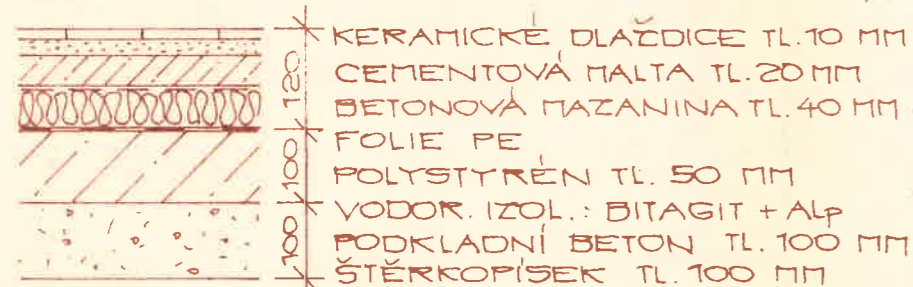 KERAMICKÉ DLAŽDICE TL. 10 MM
CEMENTOVÁ MALTA TL. 20 MM
BETONOVÁ MAZANINA TL. 40 MM
FOLIE PE
POLYSTYRÉN TL. 50 MM
VODOR. IZOL.: BITAGIT + ALp
PODKLADNÍ BETON TL. 100 MM
ŠTĚRKOPÍSEK TL. 100 MM
120
100
100